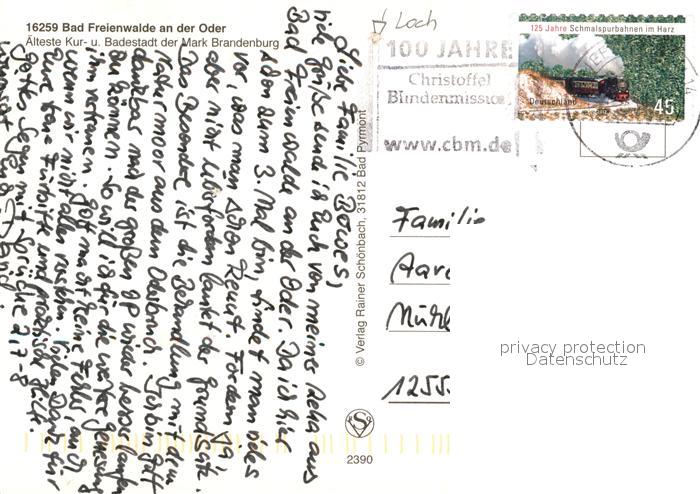 16259 Bad Freienwalde an der Oder
Älteste Kur- u. Badestadt der Mark Brandenburg
Loch
100 JAHRE
Christoffel
Blindenmission
www.cbm.de
125 Jahre Schmalspurbahnen im Harz
Deutschland
45
Liebe Familie
viele Grüße sende ich Euch von meiner Reha aus
Bad Freienwalde an der Oder. Da ich hier
schon zum 3. Mal bin, findet man alles
vor, was man schon kennt. Fordern ja,
aber nicht überfordern lautet der Grundsatz.
Das Besondere ist die Behandlung mit dem
Naturmoor aus dem
dankbar nach der großen OP wieder
zu können. So will ich für die weitere Genesung
ihm vertrauen. Gott macht keine Fehler, auch
wenn wir nicht alles verstehen. Danke für
Eure treue Fürbitte und praktische Hilfe.
Gottes Segen mit Sprüche 2,7-8
© Verlag Rainer Schönbach, 31812 Bad Pyrmont
S
2390
Familie
Aar
Mühl
1255
privacy protection
Datenschutz